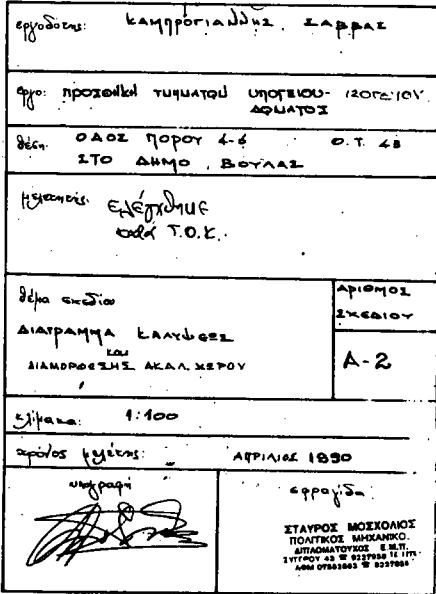 εργοδότης: ΚΑΜΠΡΟΓΙΑΝΝΗΣ ΣΑΒΒΑΣ
έργο: ΠΡΟΣΘΗΚΗ ΤΜΗΜΑΤΩΝ ΥΠΟΓΕΙΟΥ-ΙΣΟΓΕΙΟΥ
ΔΩΜΑΤΟΣ
θέση. ΟΔΟΣ ΠΟΡΟΥ 4-6 Ο.Τ. 48
ΣΤΟ ΔΗΜΟ ΒΟΥΛΑΣ
μελετητής:
ελέγχθηκε
κατά Τ.Ο.Κ.
θέμα σχεδίου
ΔΙΑΓΡΑΜΜΑ ΚΑΛΥΨΕΩΣ
και
ΔΙΑΜΟΡΦΩΣΗΣ ΑΚΑΛ. ΧΩΡΟΥ
ΑΡΙΘΜΟΣ
ΣΧΕΔΙΟΥ
Α-2
κλίμακα: 1:100
χρόνος μελέτης: ΑΠΡΙΛΙΟΣ 1990
υπογραφή
σφραγίδα
ΣΤΑΥΡΟΣ ΜΟΣΧΟΛΙΟΣ
ΠΟΛΙΤΙΚΟΣ ΜΗΧΑΝΙΚΟ.
ΔΙΠΛΩΜΑΤΟΥΧΟΣ Ε.Μ.Π.